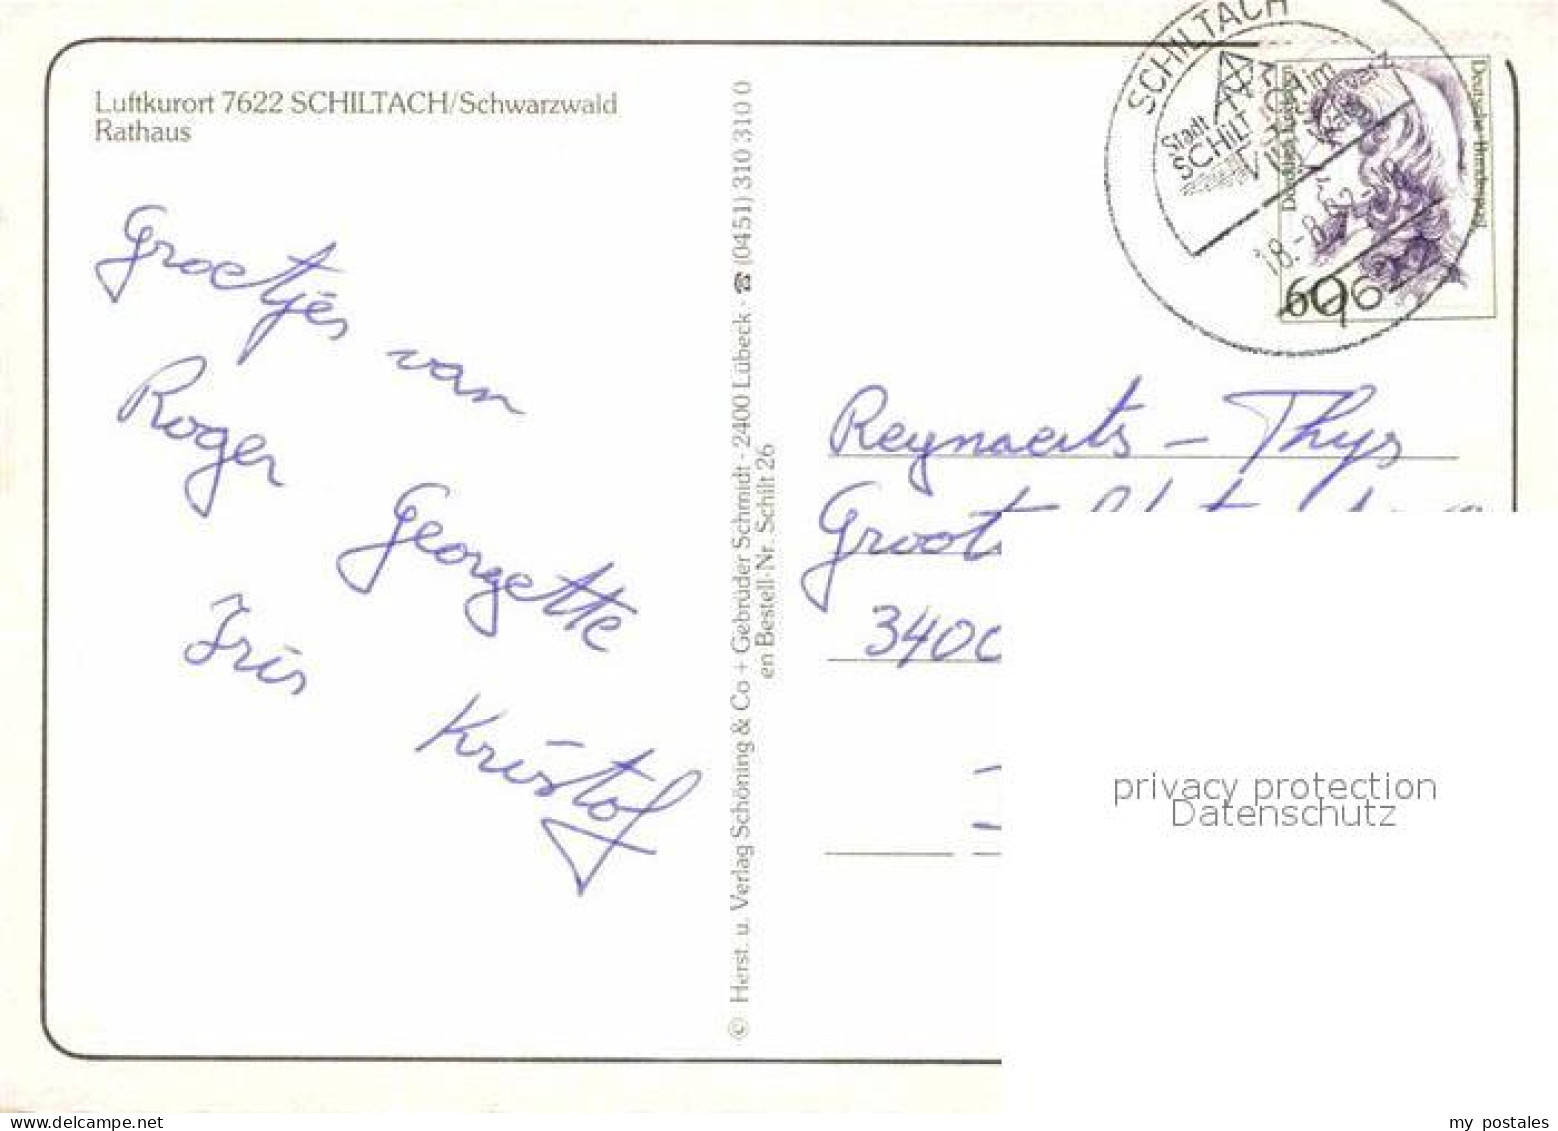 Luftkurort 7622 SCHILTACH/Schwarzwald
Rathaus
Groetjes van
Roger
Georgette
Iris
Kristof
© Herst. u. Verlag Schöning & Co + Gebrüder Schmidt · 2400 Lübeck · ☎ (0451) 310 310 0
en Bestell-Nr. Schilt 26
SCHILTACH
Stadt
SCHiLT
im
18.-8.
Deutsche Bundespost
60
Reynaerts - Thys
Groot
3400
privacy protection
Datenschutz
my postales